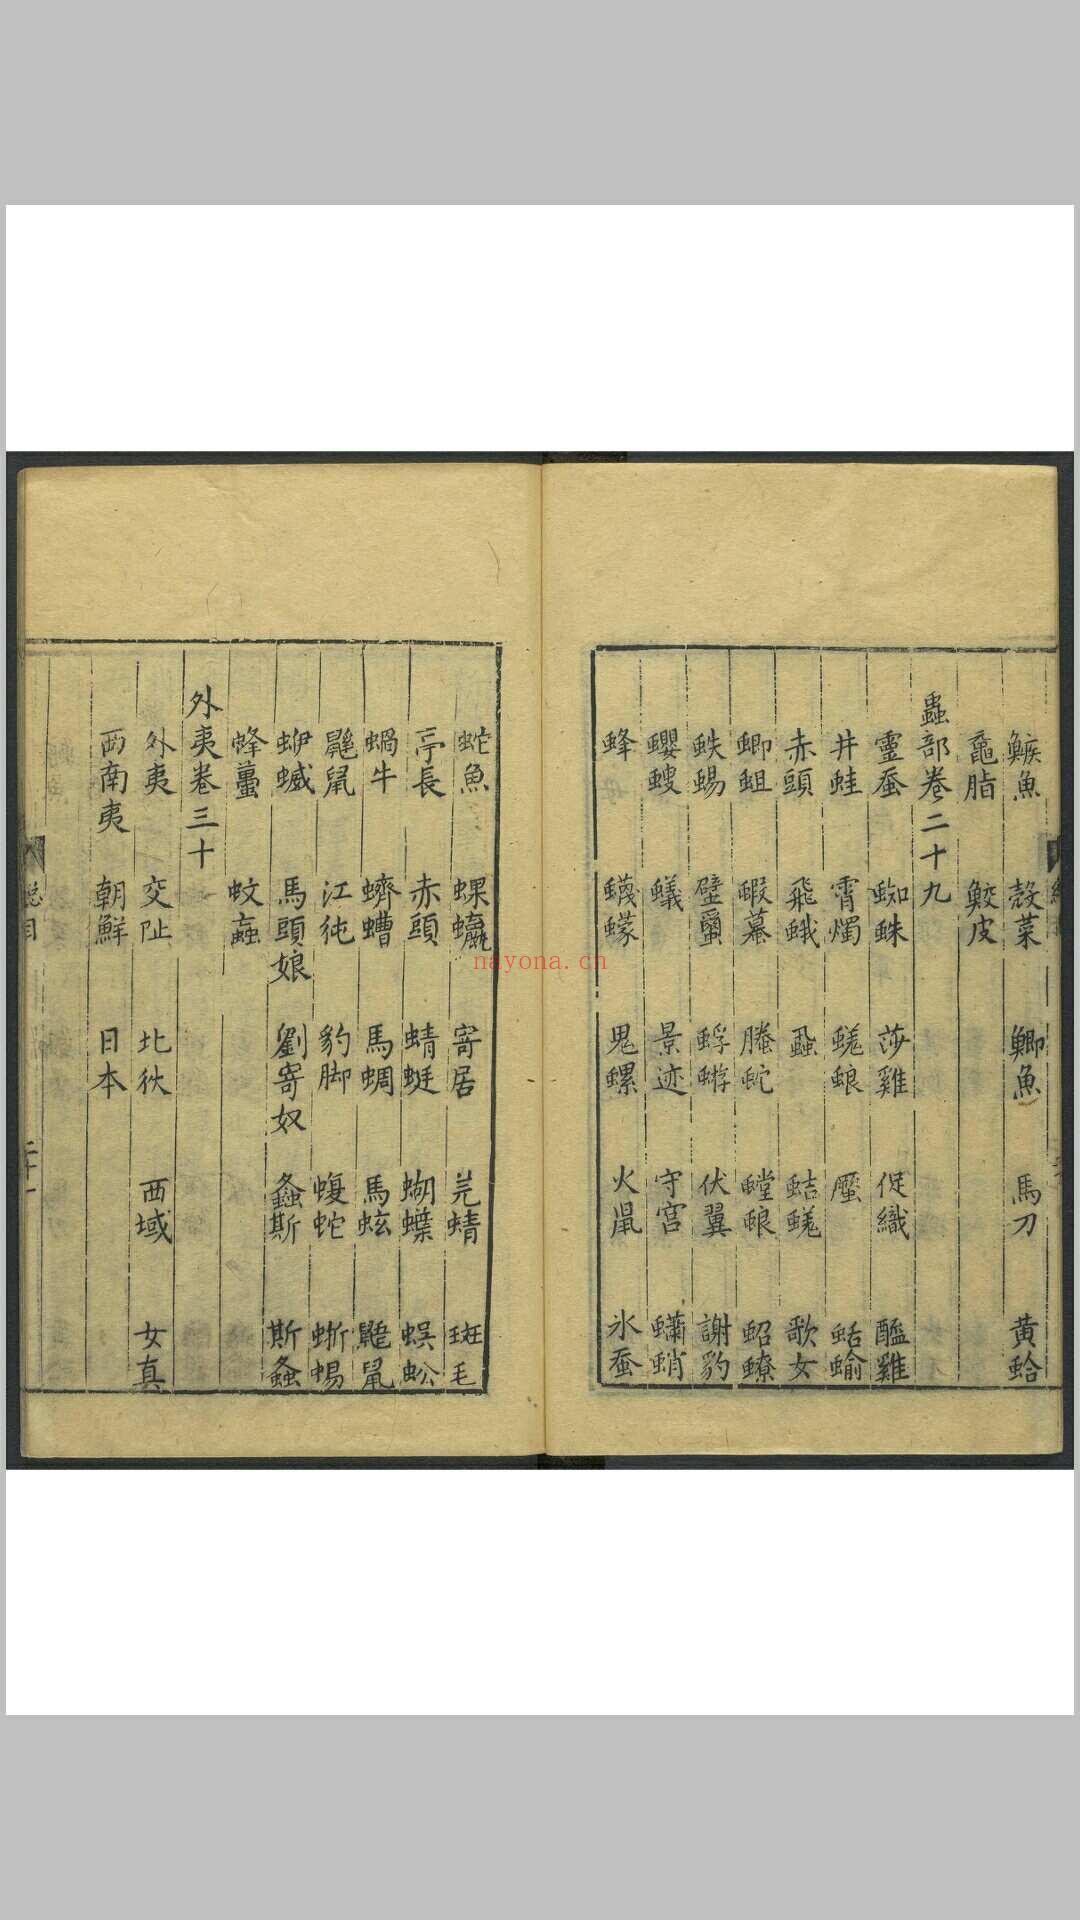 鰶魚 殼菜 鯽魚 馬刀 黃蛤
黿脂 鮫皮
蟲部卷二十九
靈蚕 蜘蛛 莎雞 促織 醯雞
井蛙 霄燭 蜣蜋 𧓍 蛞蝓
赤頭 飛蛾 蝨 蛣蜣 歌女
蝍蛆 蝦蟇 螣蛇 螳蜋 蛁蟟
蛈蜴 壁蠒 蜉蝣 伏翼 謝豹
蠼螋 蟻 景迹 守宮 蠨蛸
蜂 蠛蠓 鬼螺 火鼠 氷蚕
蛇魚 蜾蠃 寄居 芫蜻 斑毛
亭長 赤頭 蜻蜓 蝴蝶 蜈蚣
蝸牛 蠐螬 馬蜩 馬蚿 鼯鼠
鼴鼠 江㹠 豹脚 蝮蛇 蜥蜴
蛜蝛 馬頭娘 劉寄奴 螽斯 斯螽
蜂蠆 蚊蝱
外夷卷三十
外夷 交阯 北狄 西域 女真
西南夷 朝鮮 日本
總目
二十一
nayona.cn